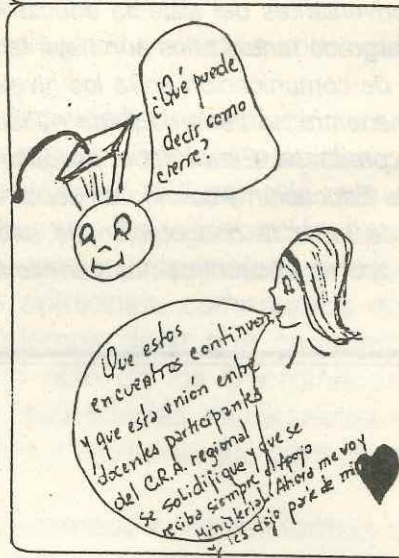 ¿Qué puede
decir como
cierre?
Que estos
encuentros continuos
y que esta union entre
docentes participantes
del C.R.A. regional
se solidifique y que se
reciba siempre el apoyo
Ministerial. Ahora me voy
y les dejo parte de mi